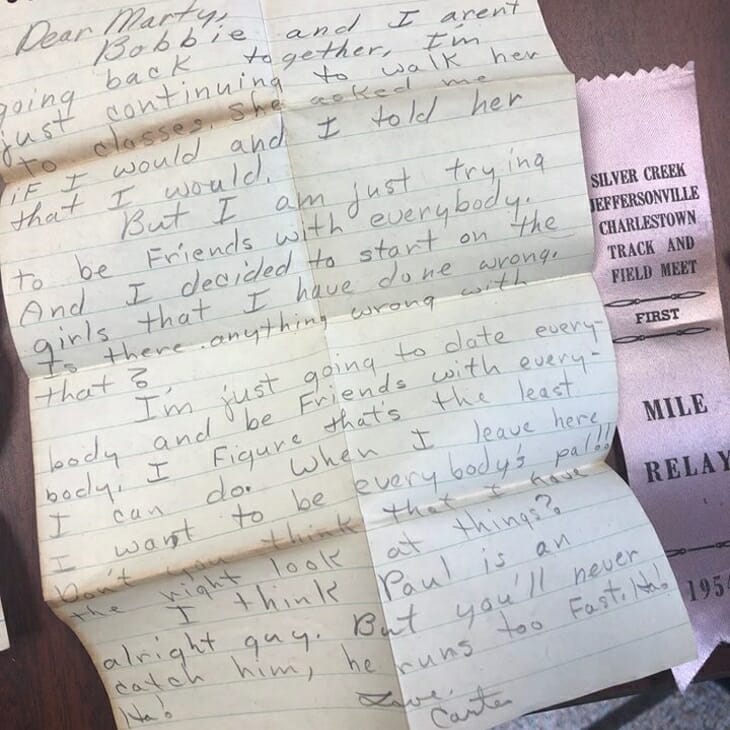 Dear Marty,
Bobbie and I arent
going back together, I'm
just continuing to walk her
to classes. She asked me
if I would and I told her
that I would.
But I am just trying
to be Friends with everybody.
And I decided to start on the
girls that I have done wrong.
Is there anything wrong with
that?
I'm just going to date every-
body and be Friends with every-
body. I Figure that's the least
I can do. When I leave here
I want to be everybody's pal!!
Don't you think that I have
the right look at things?
I think Paul is an
alright guy. But you'll never
catch him, he runs too Fast. Ha!
Ha!
Love,
Carter
SILVER CREEK
JEFFERSONVILLE
CHARLESTOWN
TRACK AND
FIELD MEET
FIRST
MILE
RELAY
1954